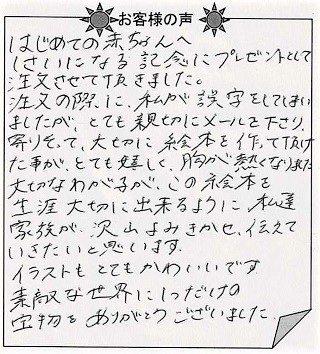 お客様の声
はじめての赤ちゃんへ
1さいになる記念にプレゼントとして
注文させて頂きました。
注文の際に、私が誤字をしてしまい
ましたが、とても親切にメールを下さり、
寄りそって、大切に絵本を作って頂け
た事が、とても嬉しく、胸が熱くなりました
大切なわが子が、この絵本を
生涯大切に出来るように 私達
家族が 沢山よみきかせ、伝えて
いきたいと思います。
イラストもとてもかわいいです
素敵な世界に1つだけの
宝物をありがとうございました